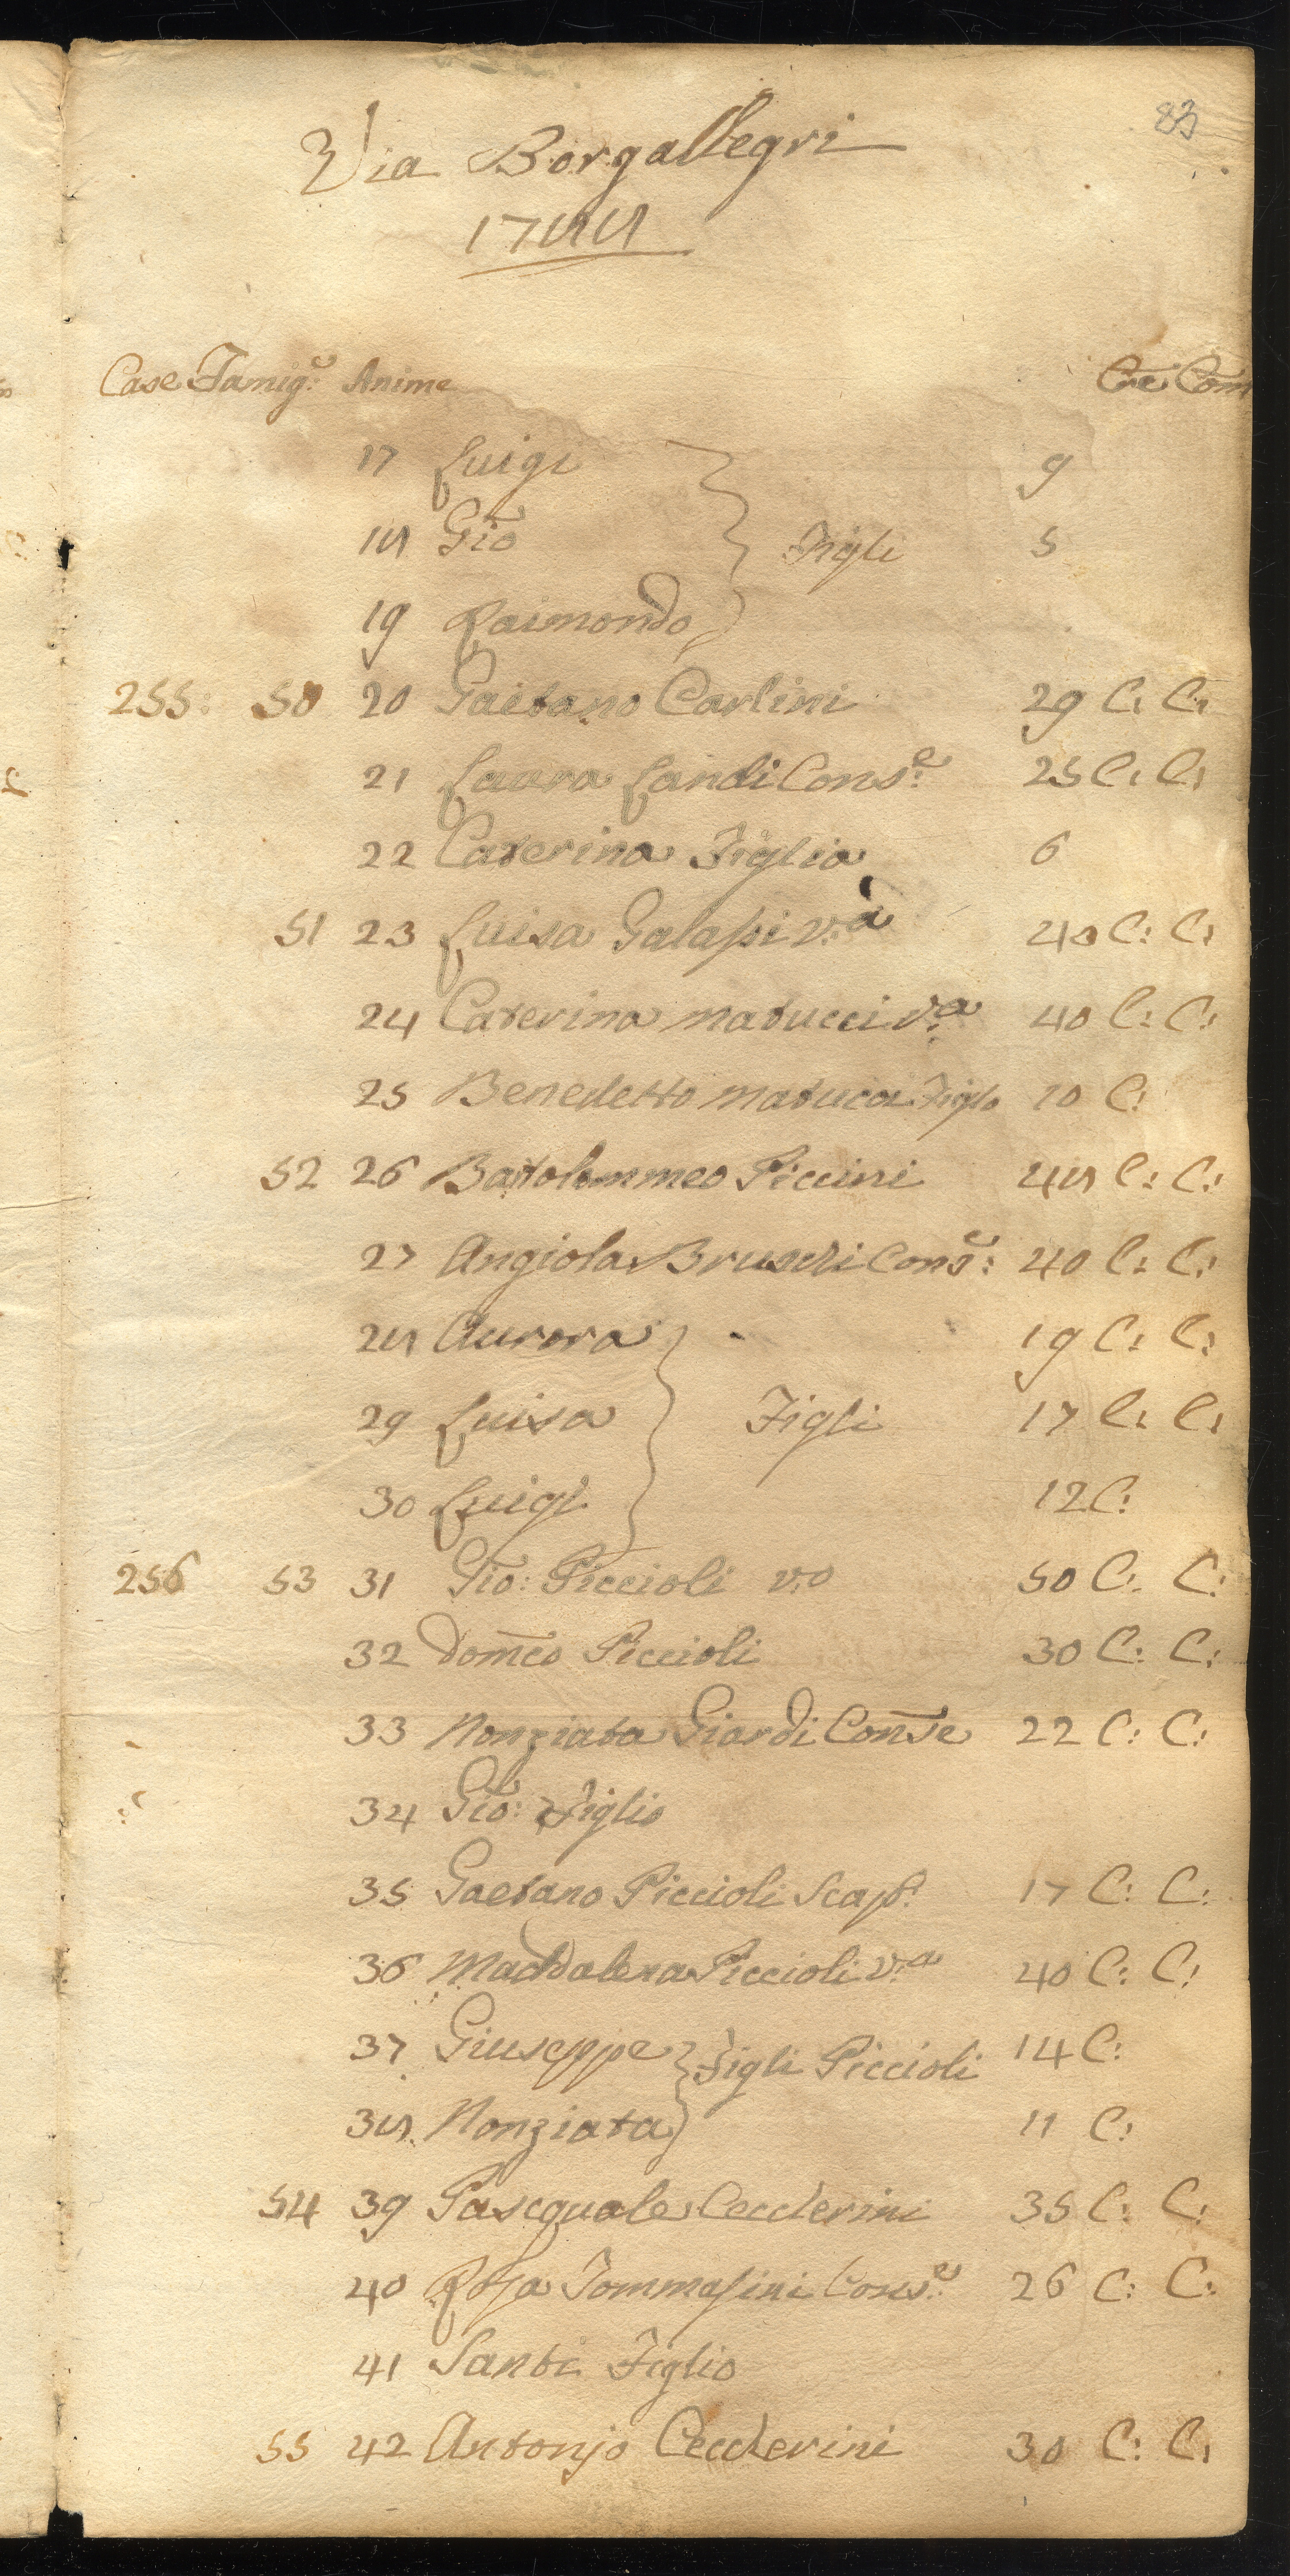 83
Via Borgallegri
1788
Case Famig:e Anime Cre Com
17 Luigi 9
18 Gio Figli 5
19 Raimondo
255: 50 20 Gaetano Carlini 29 C: C:
21 Laura Landi Cons:e 25 C: C:
22 Caterina Figlia 6
51 23 Luisa Galassi v:a 40 C: C:
24 Caterina Matucci v:a 40 C: C:
25 Benedetto Matucci Figlo 10 C:
52 26 Bartolommeo Piccini 48 C: C:
27 Angiola Bruschi Cons:e 40 C: C:
28 Aurora 19 C: C:
29 Luisa Figli 17 C: C:
30 Luigi 12 C:
256 53 31 Gio: Piccioli v:o 50 C: C:
32 Domco Piccioli 30 C: C:
33 Nonziata Giardi Conse 22 C: C:
34 Gio: Figlio
35 Gaetano Piccioli Scap: 17 C: C:
36 Maddalena Piccioli v:a 40 C: C:
37 Giuseppe Figli Piccioli 14 C:
38 Nonziata 11 C:
54 39 Pascquale Ceccherini 35 C: C:
40 Rosa Tommasini Cons:e 26 C: C:
41 Santi Figlio
55 42 Antonio Ceccherini 30 C: C: